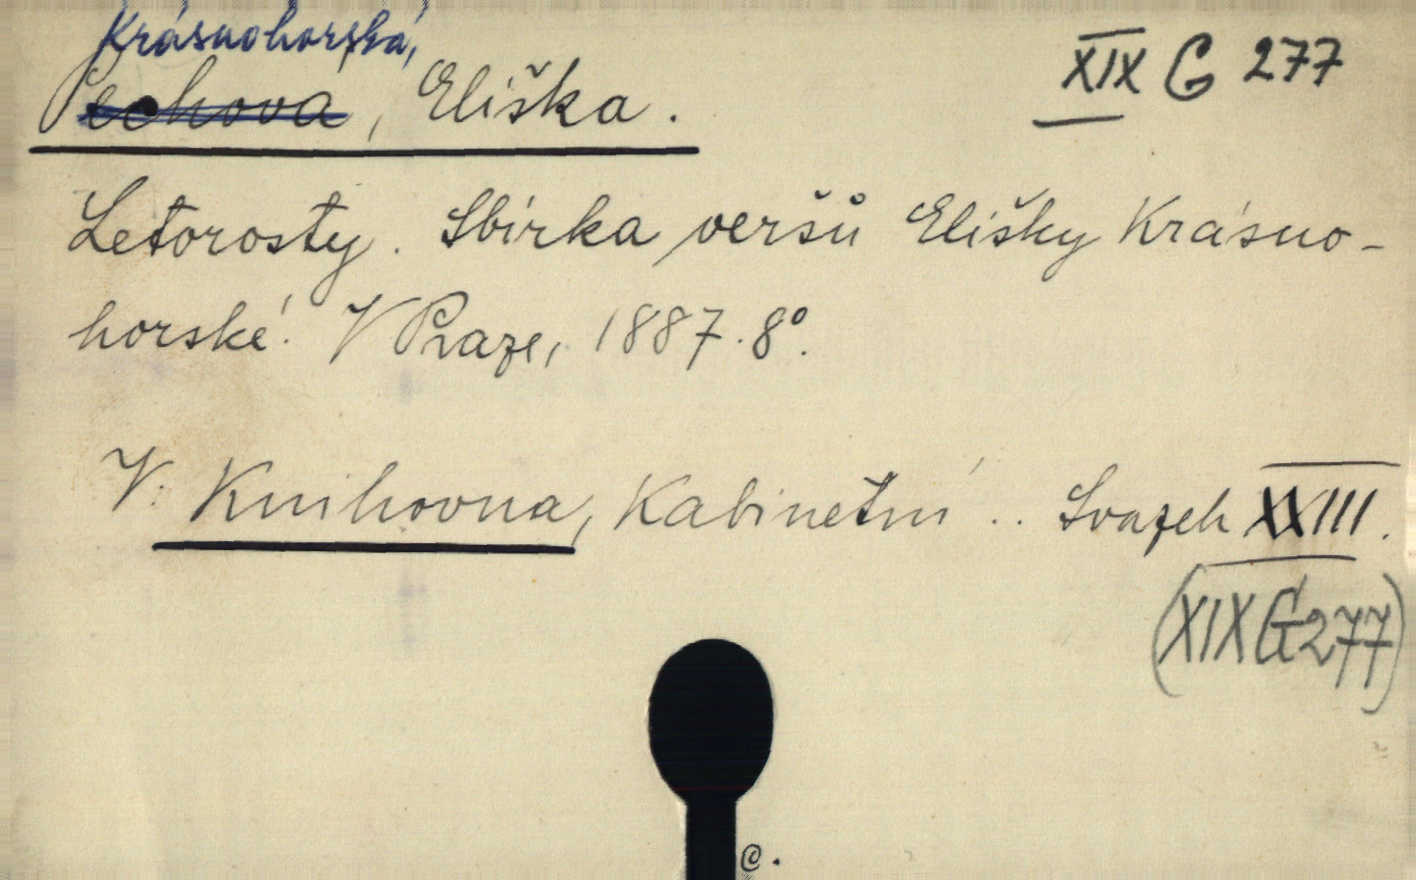 Krásnohorská,
Pechova, Eliška.
XIX G 277
Letorosty. Sbírka veršů Elišky Krásno-
horské. V Praze, 1887. 8°.
V. Knihovna, Kabinetní .. Svazek XXIII.
(XIX G 277)
C.